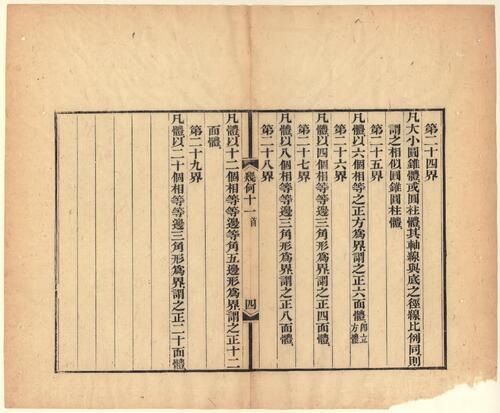 第二十四界
凡大小圓錐體或圓柱體其軸線與底之徑線比例同則
謂之相似圓錐圓柱體
第二十五界
凡體以六個相等之正方為界謂之正六面體即立方體
第二十六界
凡體以四個相等等邊三角形為界謂之正四面體
第二十七界
凡體以八個相等等邊三角形為界謂之正八面體
第二十八界
幾何十一 首 四
凡體以十二個相等等邊等角五邊形為界謂之正十二
面體
第二十九界
凡體以二十個相等等邊三角形為界謂之正二十面體